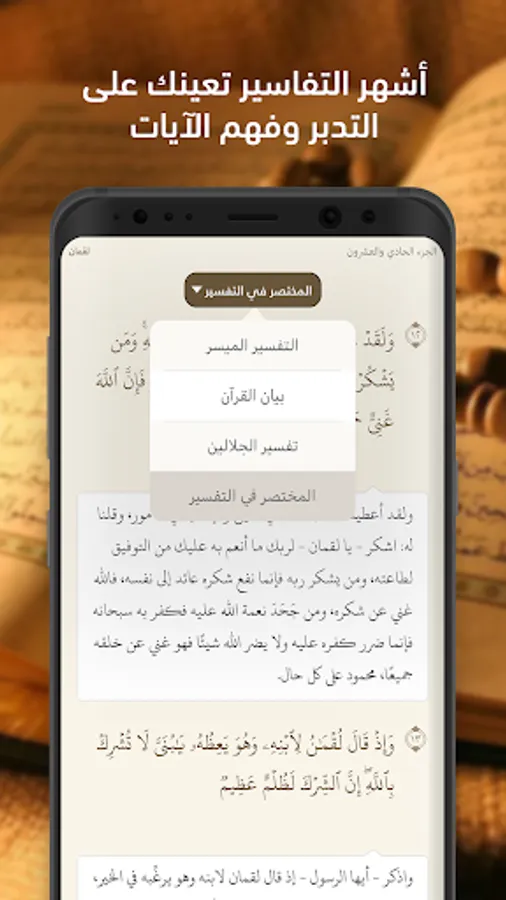 أشهر التفاسير تعينك على
التدبر وفهم الآيات
الجزء الحادي والعشرون
لقمان
المختصر في التفسير
التفسير الميسر
بيان القرآن
تفسير الجلالين
المختصر في التفسير
وَلَقَدْ وَمَن ١٢
يَشْكُرْ فَإِنَّ ٱللَّهَ
غَنِىٌّ
ولقد مور، وقلنا
له: اشكر - يا لقمان - لربك ما أنعم به عليك من التوفيق
لطاعته، ومن يشكر ربه فإنما نفع شكره عائد إلى نفسه، فالله
غني عن شكره، ومن جَحَدَ نعمة الله عليه فكفر به سبحانه
فإنما ضرر كفره عليه ولا يضر الله شيئًا فهو غني عن خلقه
جميعًا، محمود على كل حال.
وَإِذْ قَالَ لُقْمَـٰنُ لِٱبْنِهِۦ وَهُوَ يَعِظُهُۥ يَـٰبُنَىَّ لَا تُشْرِكْ ١٣
بِٱللَّهِ ۖ إِنَّ ٱلشِّرْكَ لَظُلْمٌ عَظِيمٌ
واذكر - أيها الرسول - إذ قال لقمان لابنه وهو يرغِّبه في الخير،